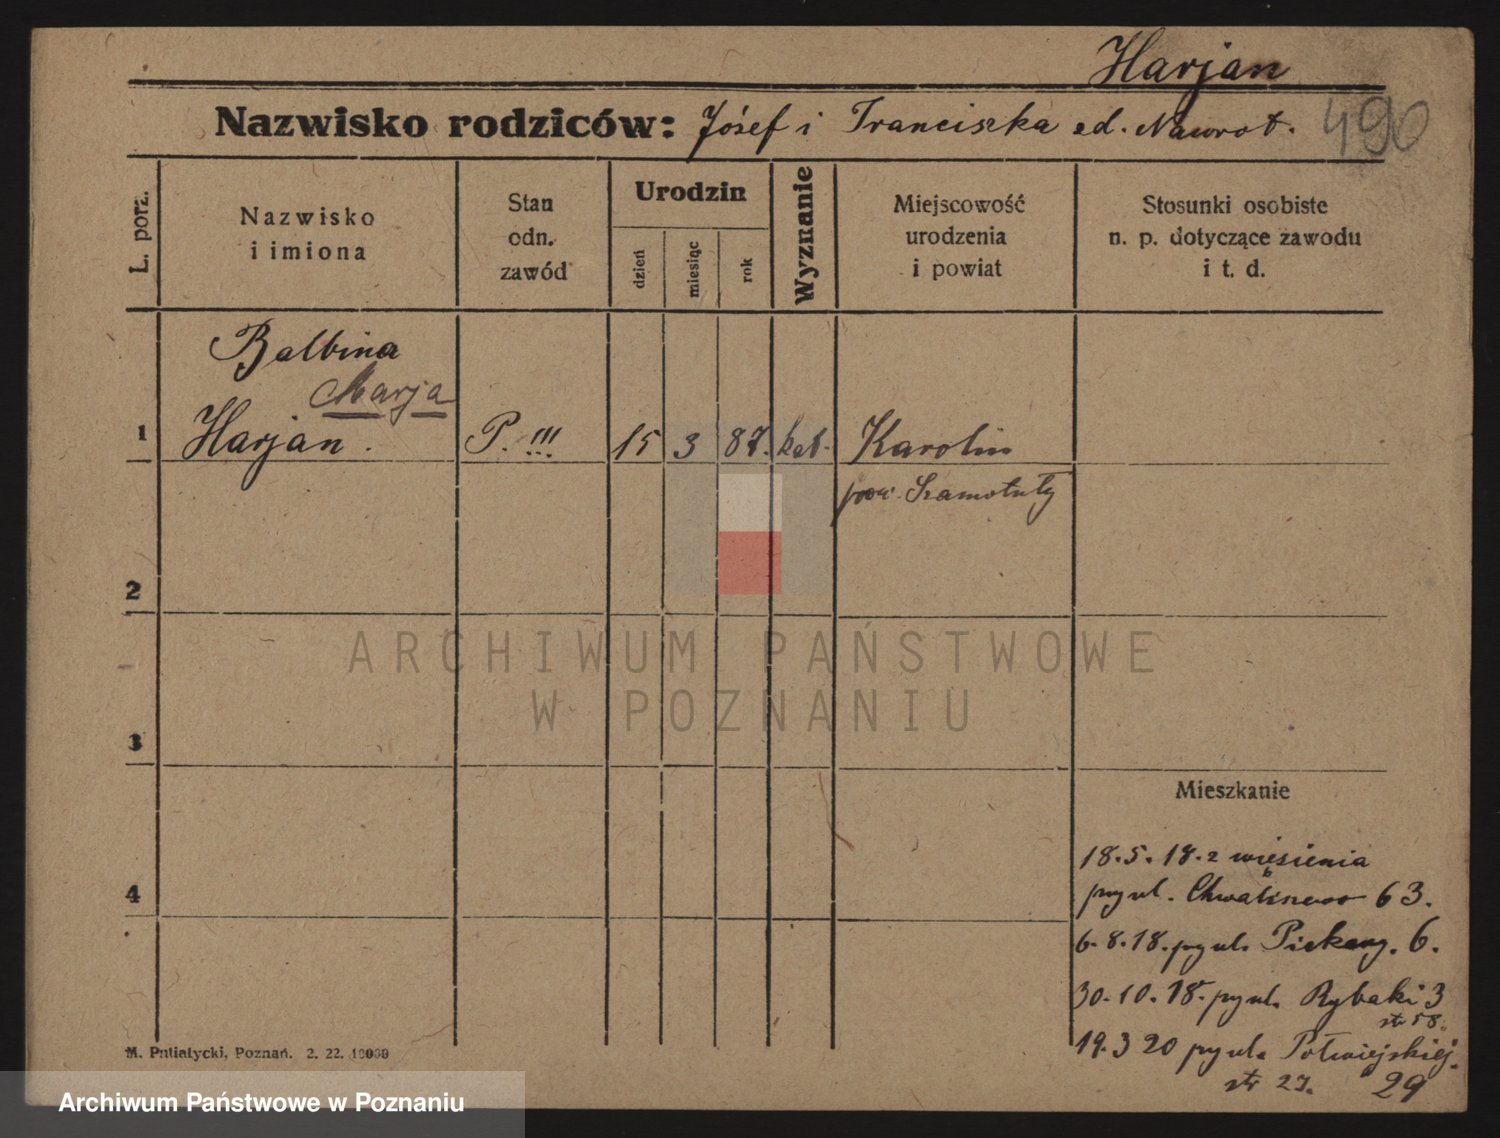 Harjan
Nazwisko rodziców: Józef i Franciszka zd. Nawrot.
490
L. porz.
Nazwisko
i imiona
Stan
odn.
zawód
Urodzin
dzień
miesiąc
rok
Wyznanie
Miejscowość
urodzenia
i powiat
Stosunki osobiste
n. p. dotyczące zawodu
i t. d.
Balbina
Marja
1 Harjan. P. !!! 15 3 87. kat. Karolin
pow. Szamotuły
2
ARCHIWUM PAŃSTWOWE
W POZNANIU
3
Mieszkanie
18.5.18. z więzienia
4 przy ul. Chwaliszewo 63.
6.8.18. przy ul. Piekary. 6.
30.10.18. przy ul. Rybaki 3
str 58.
19.3 20 przy ul. Półwiejskiej.
str 27. 29
M. Putiatycki, Poznań. 2. 22. 10000
Archiwum Państwowe w Poznaniu